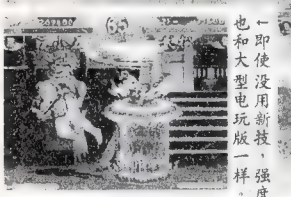 ←即使没用新技，强度
也和大型电玩版一样。
65